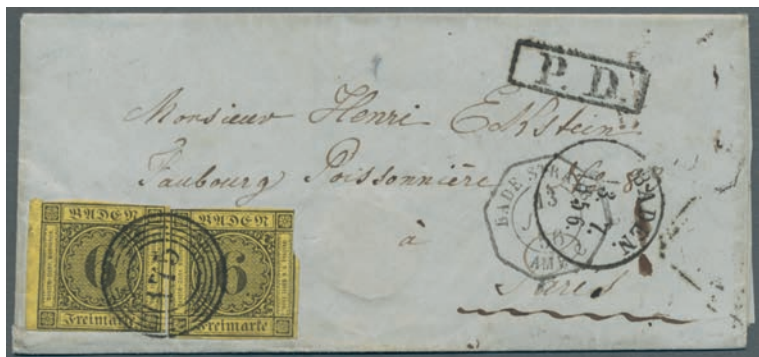 P. D.
Monsieur Henri Eckstein
Faubourg Poissonnière
à
Paris
BADE. STRA
13
56
AMB.
BADEN.
13. 7.
1856.
BADEN
6
Freimarke
BADEN
6
Freimarke
175